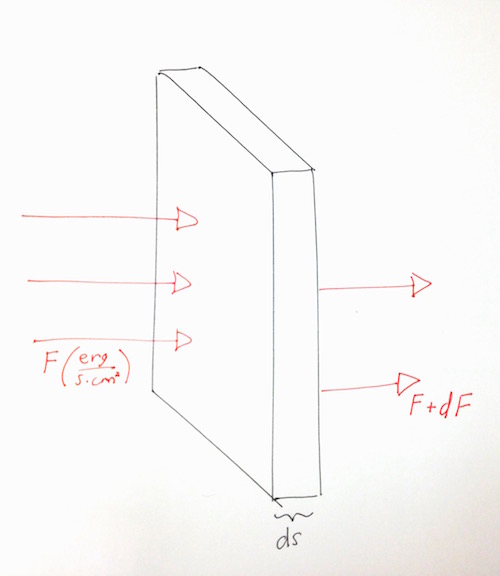 F (erg/s·cm²)
F+dF
ds